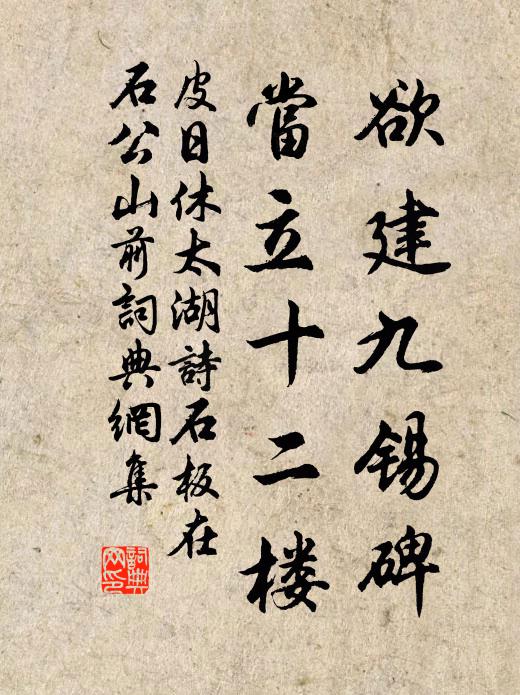 欲建九锡碑
當立十二楼
皮日休太湖詩石板在
石公山前詞典網集
詞典網印